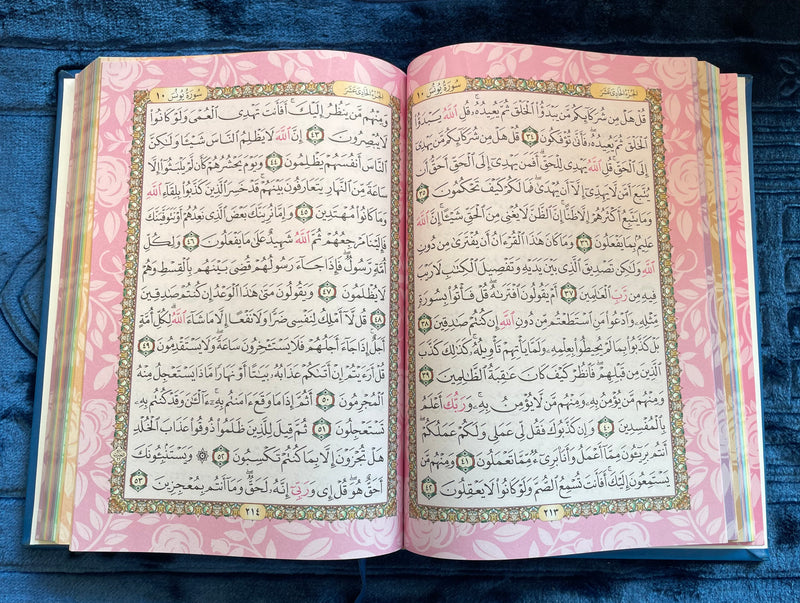 سُورَةُ يُونُسَ ١٠
الجُزْءُ الحَادِي عَشَرَ
قُلْ هَلْ مِن شُرَكَآئِكُم مَّن يَبْدَؤُا۟ ٱلْخَلْقَ ثُمَّ يُعِيدُهُۥ ۚ قُلِ ٱللَّهُ يَبْدَؤُا۟
ٱلْخَلْقَ ثُمَّ يُعِيدُهُۥ ۖ فَأَنَّىٰ تُؤْفَكُونَ ٣٤ قُلْ هَلْ مِن شُرَكَآئِكُم مَّن يَهْدِىٓ
إِلَى ٱلْحَقِّ ۚ قُلِ ٱللَّهُ يَهْدِى لِلْحَقِّ ۗ أَفَمَن يَهْدِىٓ إِلَى ٱلْحَقِّ أَحَقُّ أَن
يُتَّبَعَ أَمَّن لَّا يَهِدِّىٓ إِلَّآ أَن يُهْدَىٰ ۖ فَمَا لَكُمْ كَيْفَ تَحْكُمُونَ ٣٥
وَمَا يَتَّبِعُ أَكْثَرُهُمْ إِلَّا ظَنًّا ۚ إِنَّ ٱلظَّنَّ لَا يُغْنِى مِنَ ٱلْحَقِّ شَيْـًٔا ۚ إِنَّ ٱللَّهَ
عَلِيمٌۢ بِمَا يَفْعَلُونَ ٣٦ وَمَا كَانَ هَـٰذَا ٱلْقُرْءَانُ أَن يُفْتَرَىٰ مِن دُونِ
ٱللَّهِ وَلَـٰكِن تَصْدِيقَ ٱلَّذِى بَيْنَ يَدَيْهِ وَتَفْصِيلَ ٱلْكِتَـٰبِ لَا رَيْبَ
فِيهِ مِن رَّبِّ ٱلْعَـٰلَمِينَ ٣٧ أَمْ يَقُولُونَ ٱفْتَرَىٰهُ ۖ قُلْ فَأْتُوا۟ بِسُورَةٍ
مِّثْلِهِۦ وَٱدْعُوا۟ مَنِ ٱسْتَطَعْتُم مِّن دُونِ ٱللَّهِ إِن كُنتُمْ صَـٰدِقِينَ ٣٨
بَلْ كَذَّبُوا۟ بِمَا لَمْ يُحِيطُوا۟ بِعِلْمِهِۦ وَلَمَّا يَأْتِهِمْ تَأْوِيلُهُۥ ۚ كَذَٰلِكَ كَذَّبَ
ٱلَّذِينَ مِن قَبْلِهِمْ ۖ فَٱنظُرْ كَيْفَ كَانَ عَـٰقِبَةُ ٱلظَّـٰلِمِينَ ٣٩
وَمِنْهُم مَّن يُؤْمِنُ بِهِۦ وَمِنْهُم مَّن لَّا يُؤْمِنُ بِهِۦ ۚ وَرَبُّكَ أَعْلَمُ
بِٱلْمُفْسِدِينَ ٤٠ وَإِن كَذَّبُوكَ فَقُل لِّى عَمَلِى وَلَكُمْ عَمَلُكُمْ ۖ
أَنتُم بَرِيٓـُٔونَ مِمَّآ أَعْمَلُ وَأَنَا۠ بَرِىٓءٌ مِّمَّا تَعْمَلُونَ ٤١ وَمِنْهُم مَّن
يَسْتَمِعُونَ إِلَيْكَ ۚ أَفَأَنتَ تُسْمِعُ ٱلصُّمَّ وَلَوْ كَانُوا۟ لَا يَعْقِلُونَ ٤٢
٢١٣
الجُزْءُ الحَادِي عَشَرَ
سُورَةُ يُونُسَ ١٠
وَمِنْهُم مَّن يَنظُرُ إِلَيْكَ ۚ أَفَأَنتَ تَهْدِى ٱلْعُمْىَ وَلَوْ كَانُوا۟
لَا يُبْصِرُونَ ٤٣ إِنَّ ٱللَّهَ لَا يَظْلِمُ ٱلنَّاسَ شَيْـًٔا وَلَـٰكِنَّ
ٱلنَّاسَ أَنفُسَهُمْ يَظْلِمُونَ ٤٤ وَيَوْمَ يَحْشُرُهُمْ كَأَن لَّمْ يَلْبَثُوٓا۟ إِلَّا
سَاعَةً مِّنَ ٱلنَّهَارِ يَتَعَارَفُونَ بَيْنَهُمْ ۚ قَدْ خَسِرَ ٱلَّذِينَ كَذَّبُوا۟ بِلِقَآءِ ٱللَّهِ
وَمَا كَانُوا۟ مُهْتَدِينَ ٤٥ وَإِمَّا نُرِيَنَّكَ بَعْضَ ٱلَّذِى نَعِدُهُمْ أَوْ نَتَوَفَّيَنَّكَ
فَإِلَيْنَا مَرْجِعُهُمْ ثُمَّ ٱللَّهُ شَهِيدٌ عَلَىٰ مَا يَفْعَلُونَ ٤٦ وَلِكُلِّ
أُمَّةٍ رَّسُولٌ ۖ فَإِذَا جَآءَ رَسُولُهُمْ قُضِىَ بَيْنَهُم بِٱلْقِسْطِ وَهُمْ
لَا يُظْلَمُونَ ٤٧ وَيَقُولُونَ مَتَىٰ هَـٰذَا ٱلْوَعْدُ إِن كُنتُمْ صَـٰدِقِينَ
٤٨ قُل لَّآ أَمْلِكُ لِنَفْسِى ضَرًّا وَلَا نَفْعًا إِلَّا مَا شَآءَ ٱللَّهُ ۗ لِكُلِّ أُمَّةٍ
أَجَلٌ ۚ إِذَا جَآءَ أَجَلُهُمْ فَلَا يَسْتَـْٔخِرُونَ سَاعَةً ۖ وَلَا يَسْتَقْدِمُونَ ٤٩
قُلْ أَرَءَيْتُمْ إِنْ أَتَىٰكُمْ عَذَابُهُۥ بَيَـٰتًا أَوْ نَهَارًا مَّاذَا يَسْتَعْجِلُ مِنْهُ
ٱلْمُجْرِمُونَ ٥٠ أَثُمَّ إِذَا مَا وَقَعَ ءَامَنتُم بِهِۦٓ ۚ ءَآلْـَٔـٰنَ وَقَدْ كُنتُم بِهِۦ
تَسْتَعْجِلُونَ ٥١ ثُمَّ قِيلَ لِلَّذِينَ ظَلَمُوا۟ ذُوقُوا۟ عَذَابَ ٱلْخُلْدِ
هَلْ تُجْزَوْنَ إِلَّا بِمَا كُنتُمْ تَكْسِبُونَ ٥٢ ۞ وَيَسْتَنۢبِـُٔونَكَ
أَحَقٌّ هُوَ ۖ قُلْ إِى وَرَبِّىٓ إِنَّهُۥ لَحَقٌّ ۖ وَمَآ أَنتُم بِمُعْجِزِينَ ٥٣
٢١٤